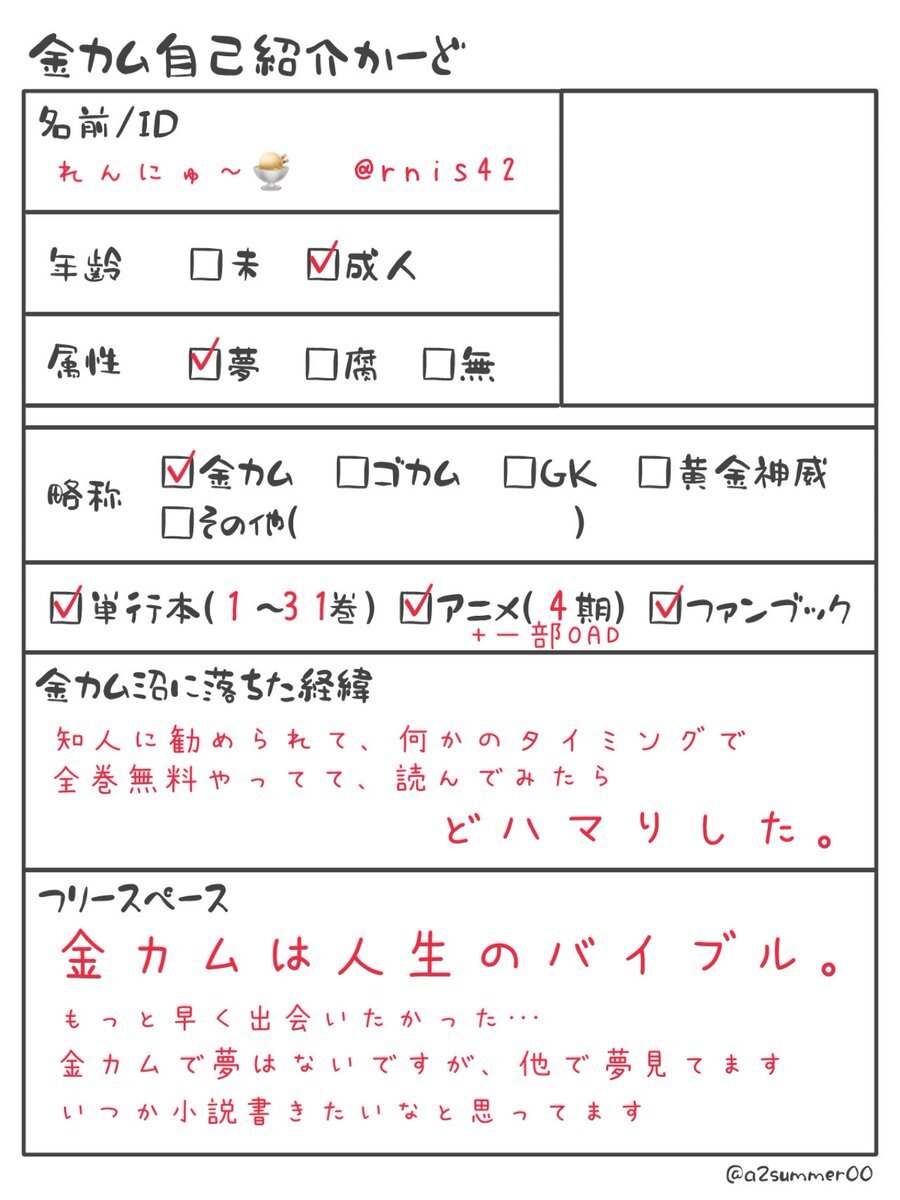 金カム自己紹介かーど
名前/ID
れんにゅ～🍨 @rnis42
年齢 □未 ☑成人
属性 ☑夢 □腐 □無
略称 ☑金カム □ゴカム □GK □黄金神威
□その他( )
☑単行本(1～31巻) ☑アニメ(4期) ☑ファンブック
+一部OAD
金カム沼に落ちた経緯
知人に勧められて、何かのタイミングで
全巻無料やってて、読んでみたら
どハマりした。
フリースペース
金カムは人生のバイブル。
もっと早く出会いたかった…
金カムで夢はないですが、他で夢見てます
いつか小説書きたいなと思ってます
@a2summer00